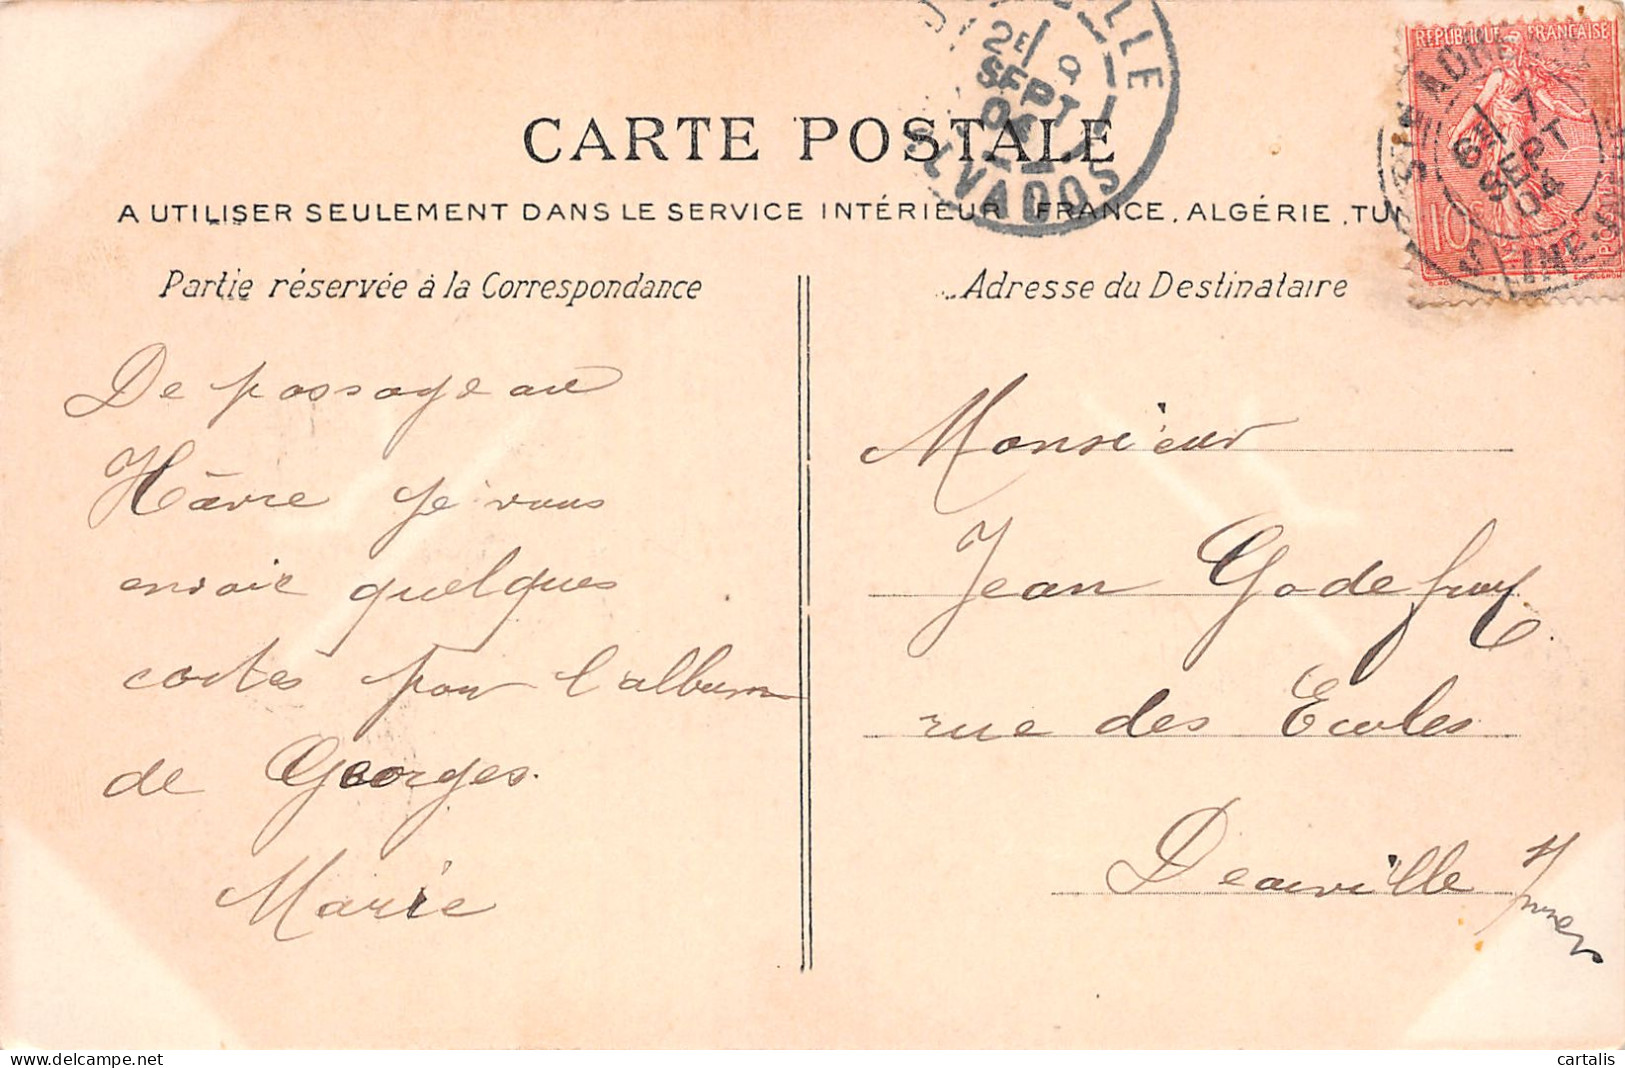 CARTE POSTALE
A UTILISER SEULEMENT DANS LE SERVICE INTÉRIEUR FRANCE, ALGÉRIE, TU
Partie réservée à la Correspondance
De passage au
Hâvre je vous
envoie quelques
cartes pour l'album
de Georges.
Marie
Adresse du Destinataire
Monsieur
Jean Godefroy
rue des Ecoles
Deauville
LLE
2E 9
SEPT
04
LVADOS
REPUBLIQUE FRANÇAISE
10c
POSTES
STE ADRE
6E 7
SEPT
04
INF
cartalis